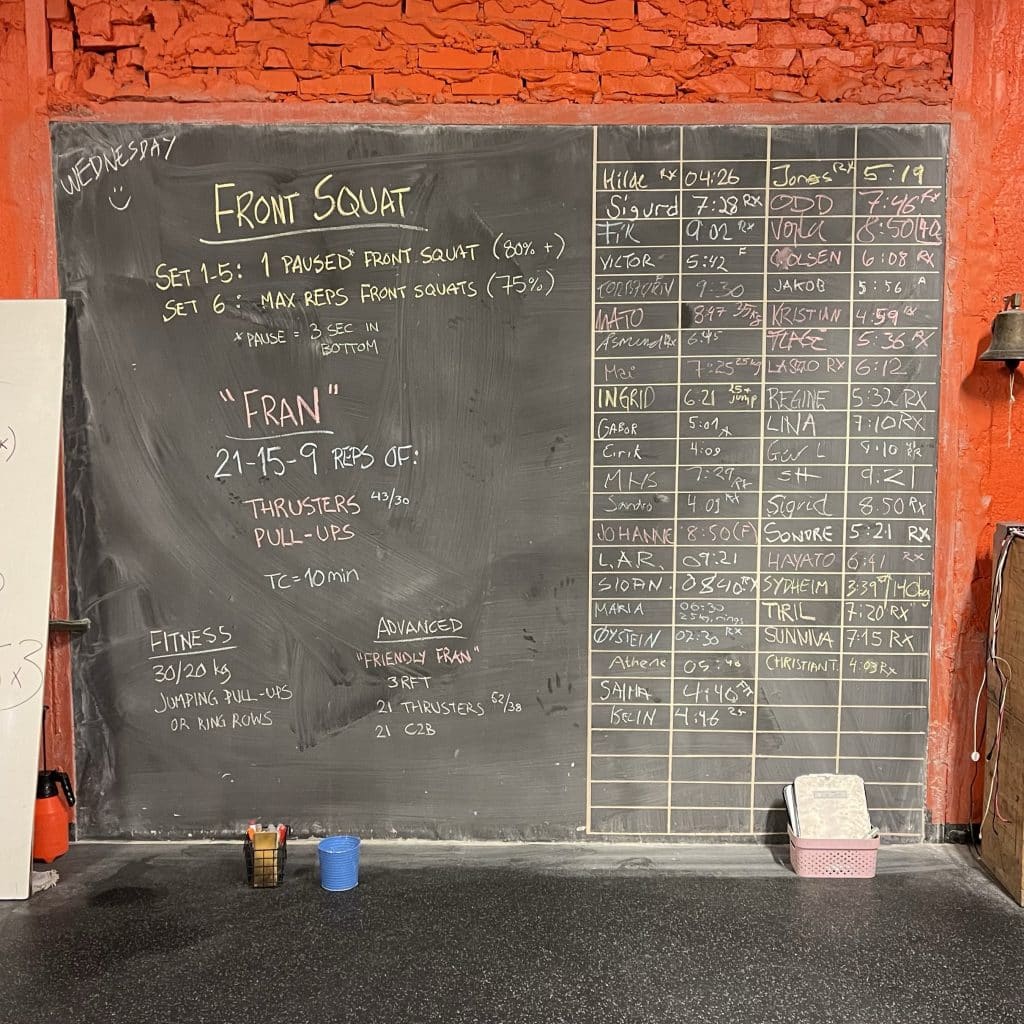 WEDNESDAY
FRONT SQUAT
SET 1-5: 1 PAUSED* FRONT SQUAT (80% +)
SET 6: MAX REPS FRONT SQUATS (75%)
*PAUSE = 3 SEC IN
BOTTOM
"FRAN"
21-15-9 REPS OF:
THRUSTERS 43/30
PULL-UPS
TC = 10 min
FITNESS
30/20 kg
JUMPING PULL-UPS
OR RING ROWS
ADVANCED
"FRIENDLY FRAN"
3 RFT
21 THRUSTERS 52/38
21 C2B
Hilde RX 04:26 Jonas RX 5:19
Sigurd 7:28 RX ODD 7:46
9 02 RX 8:50
VICTOR 5:42 F OLSEN 6:08 RX
9:30 JAKOB 5:56 A
MATO 8:47 KRISTIAN 4:59
Asmund RX 6:45 5:36 RX
Mai 7:25 25kg LASZLO RX 6:12
INGRID 6:21 25+ jump REGINE 5:32 RX
GABOR 5:01 LINA 7:10 RX
Eirik 4:09
MHS 7:29 RX SH 9:21
Sandro 4 09 RX Sigrid 8.50 RX
JOHANNE 8:50 (F) SONDRE 5:21 RX
L.A.R. 09:21 HAYATO 6:41 RX
0840 RX SYDHEIM 3:39 /140kg
MARIA 06:30 25kg, rings TIRIL 7:20 RX
ØYSTEIN 02:30 RX SUNNIVA 7:15 RX
Athene 05:40 CHRISTIAN T. 4:03 RX
SAIMA 4:40
4:46